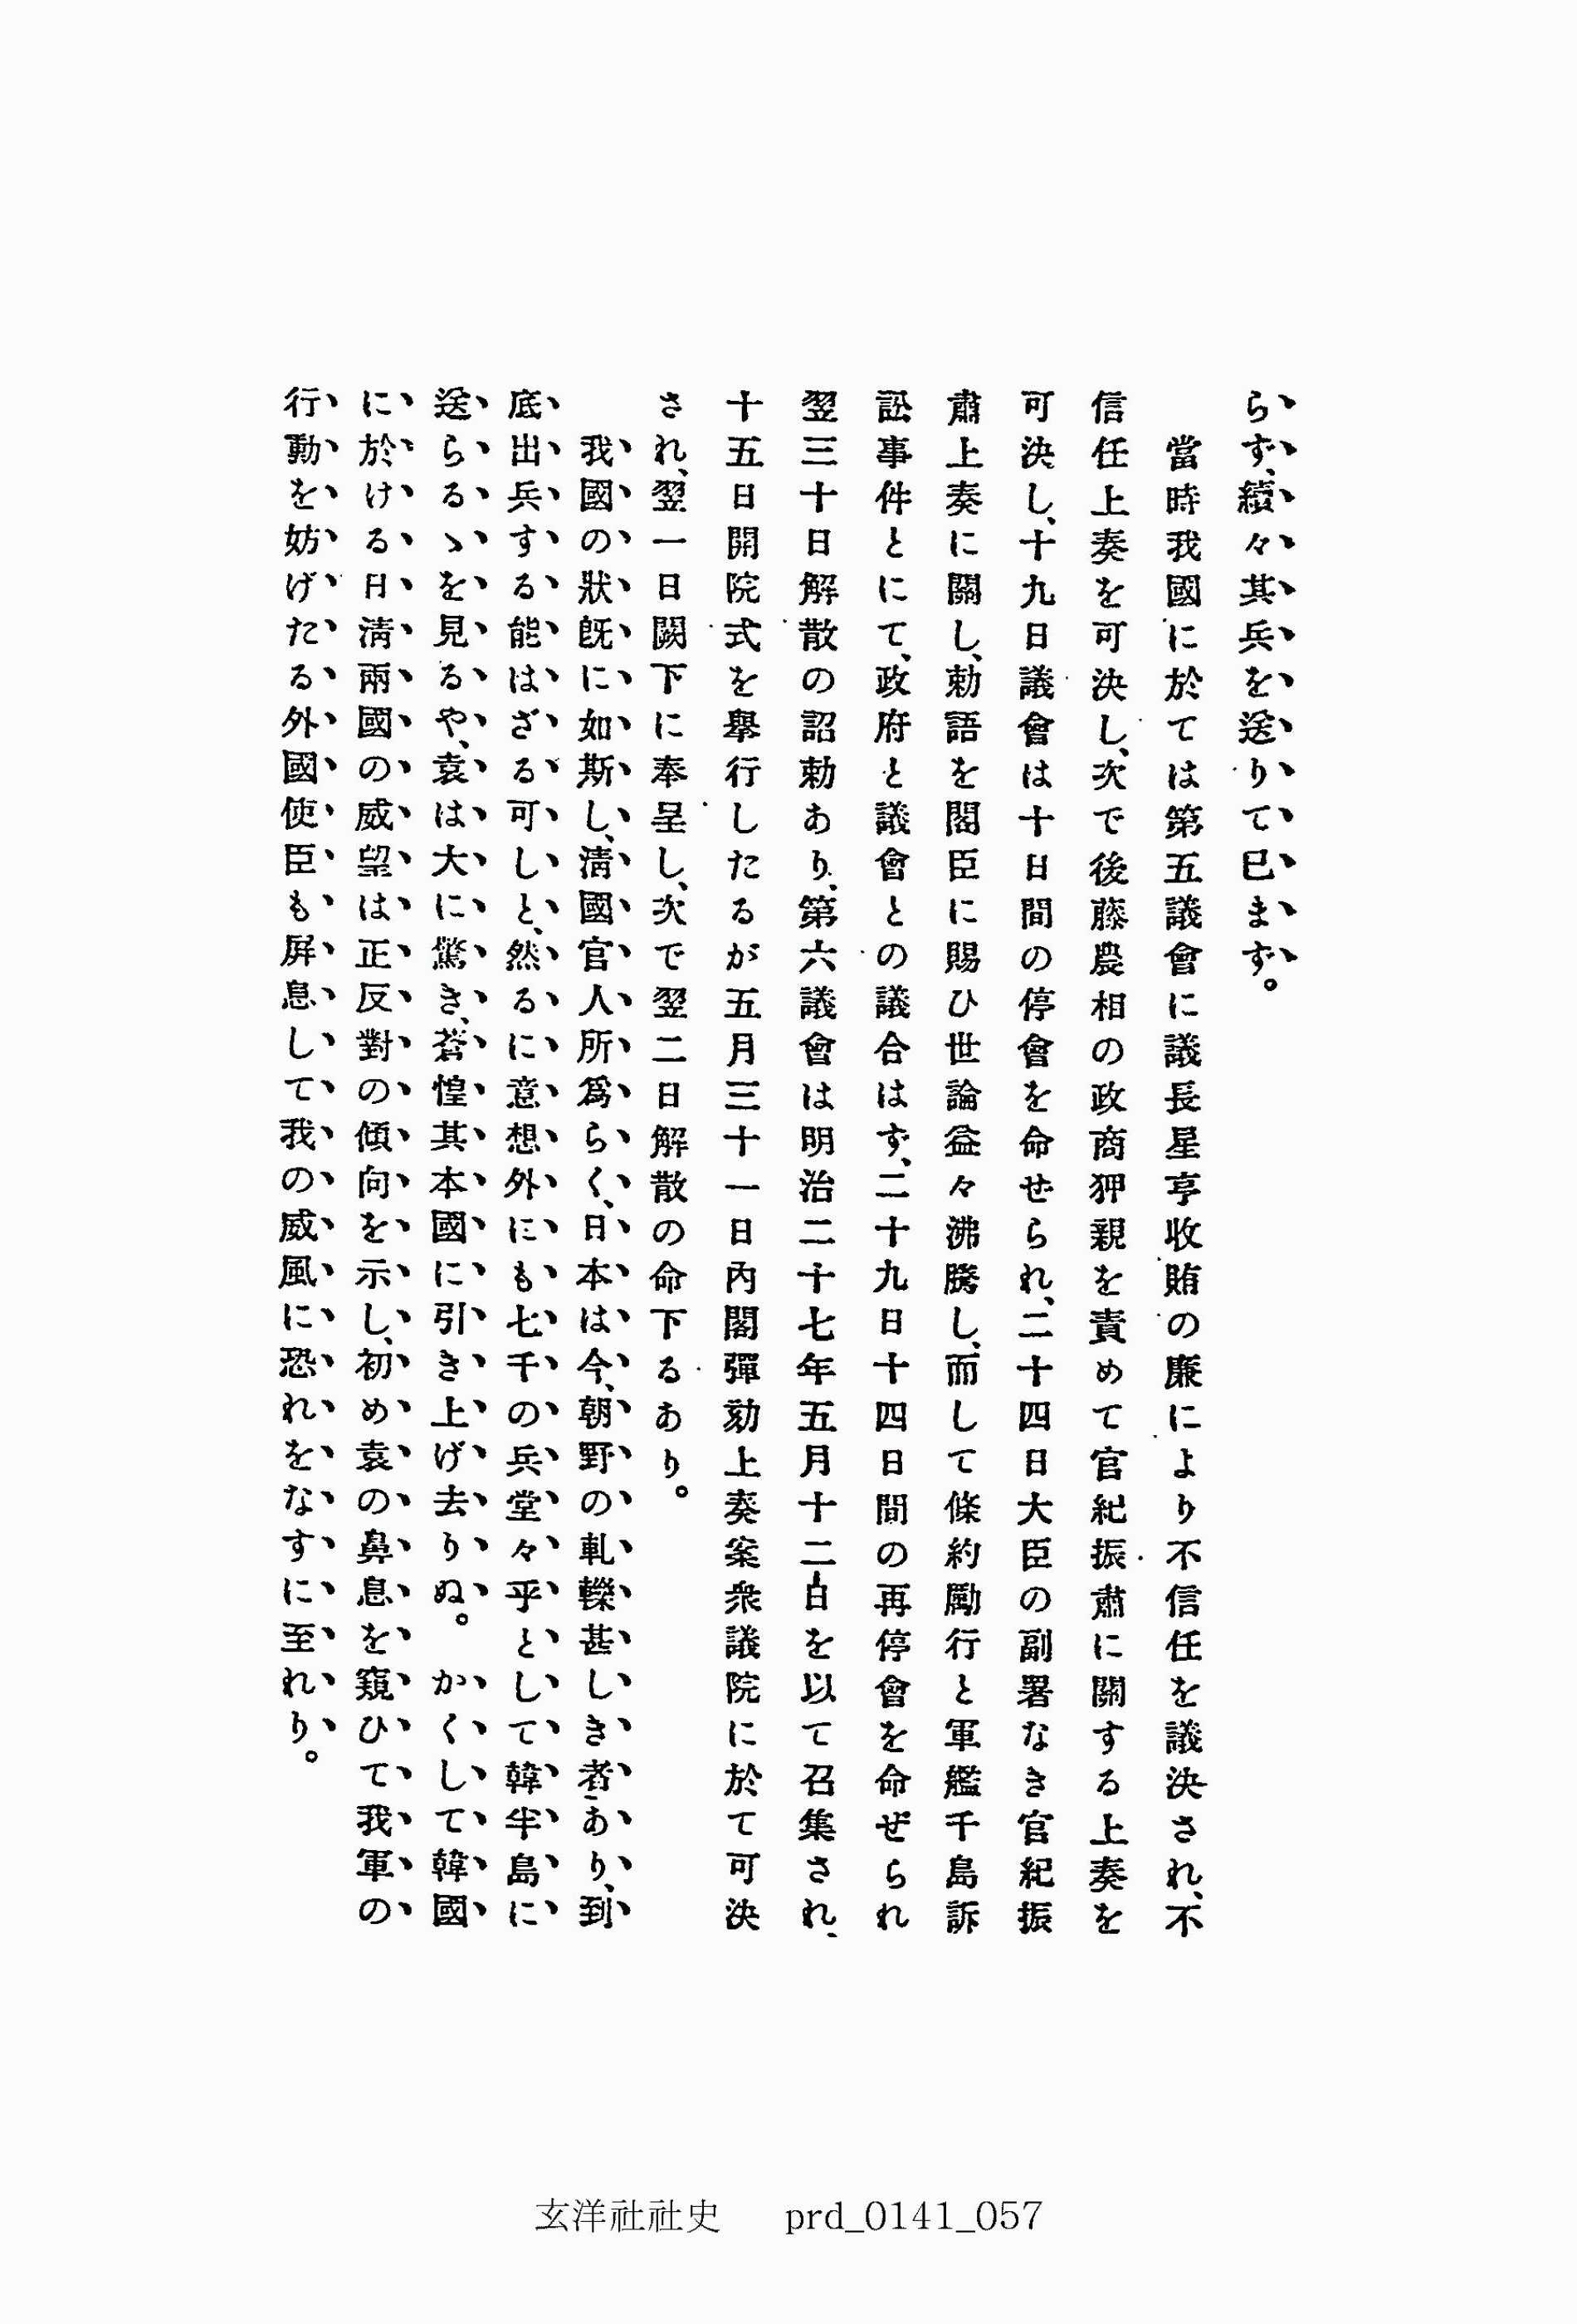 らず、續々其兵を送りて已まず。
當時我國に於ては第五議會に議長星亨收賄の廉により不信任を議決され、不
信任上奏を可決し、次で後藤農相の政商狎親を責めて官紀振肅に關する上奏を
可決し、十九日議會は十日間の停會を命せられ、二十四日大臣の副署なき官紀振
肅上奏に關し、勅語を閣臣に賜ひ世論益々沸騰し、而して條約勵行と軍艦千島訴
訟事件とにて、政府と議會との議合はず、二十九日十四日間の再停會を命ぜられ
翌三十日解散の詔勅あり、第六議會は明治二十七年五月十二日を以て召集され、
十五日開院式を擧行したるが五月三十一日內閣彈劾上奏案衆議院に於て可決
され、翌一日闕下に奉呈し、次で翌二日解散の命下るあり。
我國の狀旣に如斯し、淸國官人所爲らく、日本は今、朝野の軋轢甚しき者あり、到
底出兵する能はざる可しと、然るに意想外にも七千の兵堂々乎として韓半島に
送らるゝを見るや、袁は大に驚き、蒼惶其本國に引き上げ去りぬ。かくして韓國
に於ける日淸兩國の威望は正反對の傾向を示し、初め袁の鼻息を窺ひて我軍の
行動を妨げたる外國使臣も屛息して我の威風に恐れをなすに至れり。
玄洋社社史 prd_0141_057